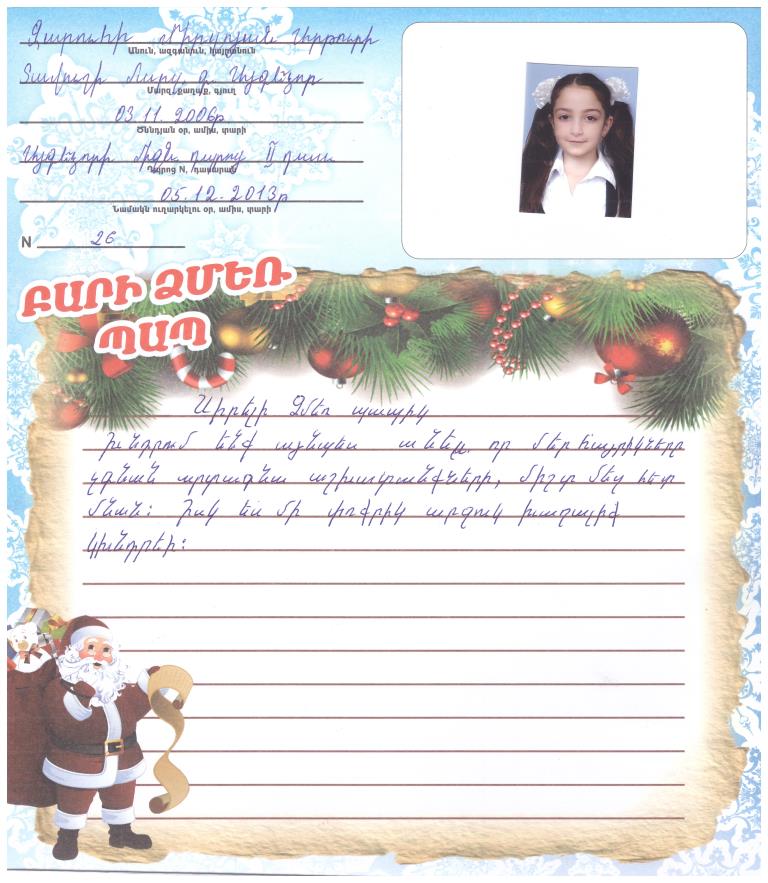 Զարուհի Միրզոյան Արթուրի
Անուն, ազգանուն, հայրանուն
Տավուշի մարզ գ. Այգեձոր
Մարզ, քաղաք, գյուղ
03.11.2006թ
Ծննդյան օր, ամիս, տարի
Այգեձորի միջն. դպրոց II դաս.
Դպրոց N, դասարան
05.12.2013թ
Նամակն ուղարկելու օր, ամիս, տարի
N 26
ԲԱՐԻ ՁՄԵՌ
ՊԱՊ
Սիրելի Ձմեռ պապիկ
խնդրում ենք այնպես անեել. որ մեր հայրիկները
չգնան արտագնա աշխատանքների, միշտ մեզ հետ
մնան: Իսկ ես մի փոքրիկ արջուկ խաղալիք
կխնդրեի: